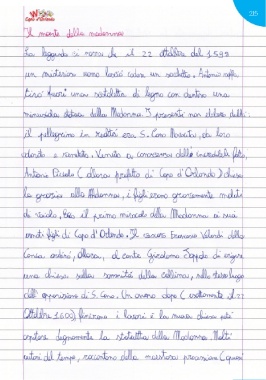 Capo d'Orlando
Il monte della madonna
La leggenda ci narra che il 22 ottobre del 1598
un misterioso uomo lasciò cadere un sacchetto, Antonio
fuori una statuetta di legno con dentro una
minuscola statua della Madonna. I presenti non ebbero dubbi:
il pellegrino in realtà era S. Cono
donato e venduto. Venuto a conoscenza della incredibile fatto,
Antonio Piccolo (allora prefetto di Capo d'Orlando) chiese
la grazia alla Madonna, i figli erano gravemente malati
di vaiolo, fu il primo miracolo della Madonna in sua
figli di Capo d'Orlando. Il vescovo Francesco Velardi della
Conca ordinò, allora, al conte Girolamo Joppolo di erigere
una chiesa sulla sommità della collina, nello stesso luogo
dell'apparizione di S. Cono. Un anno dopo (esattamente il 22
Ottobre 1600) finirono i lavori e la nuova chiesa poté
ospitare degnamente la statuetta della Madonna. Molti
autori del tempo, raccontano della maestosa processione